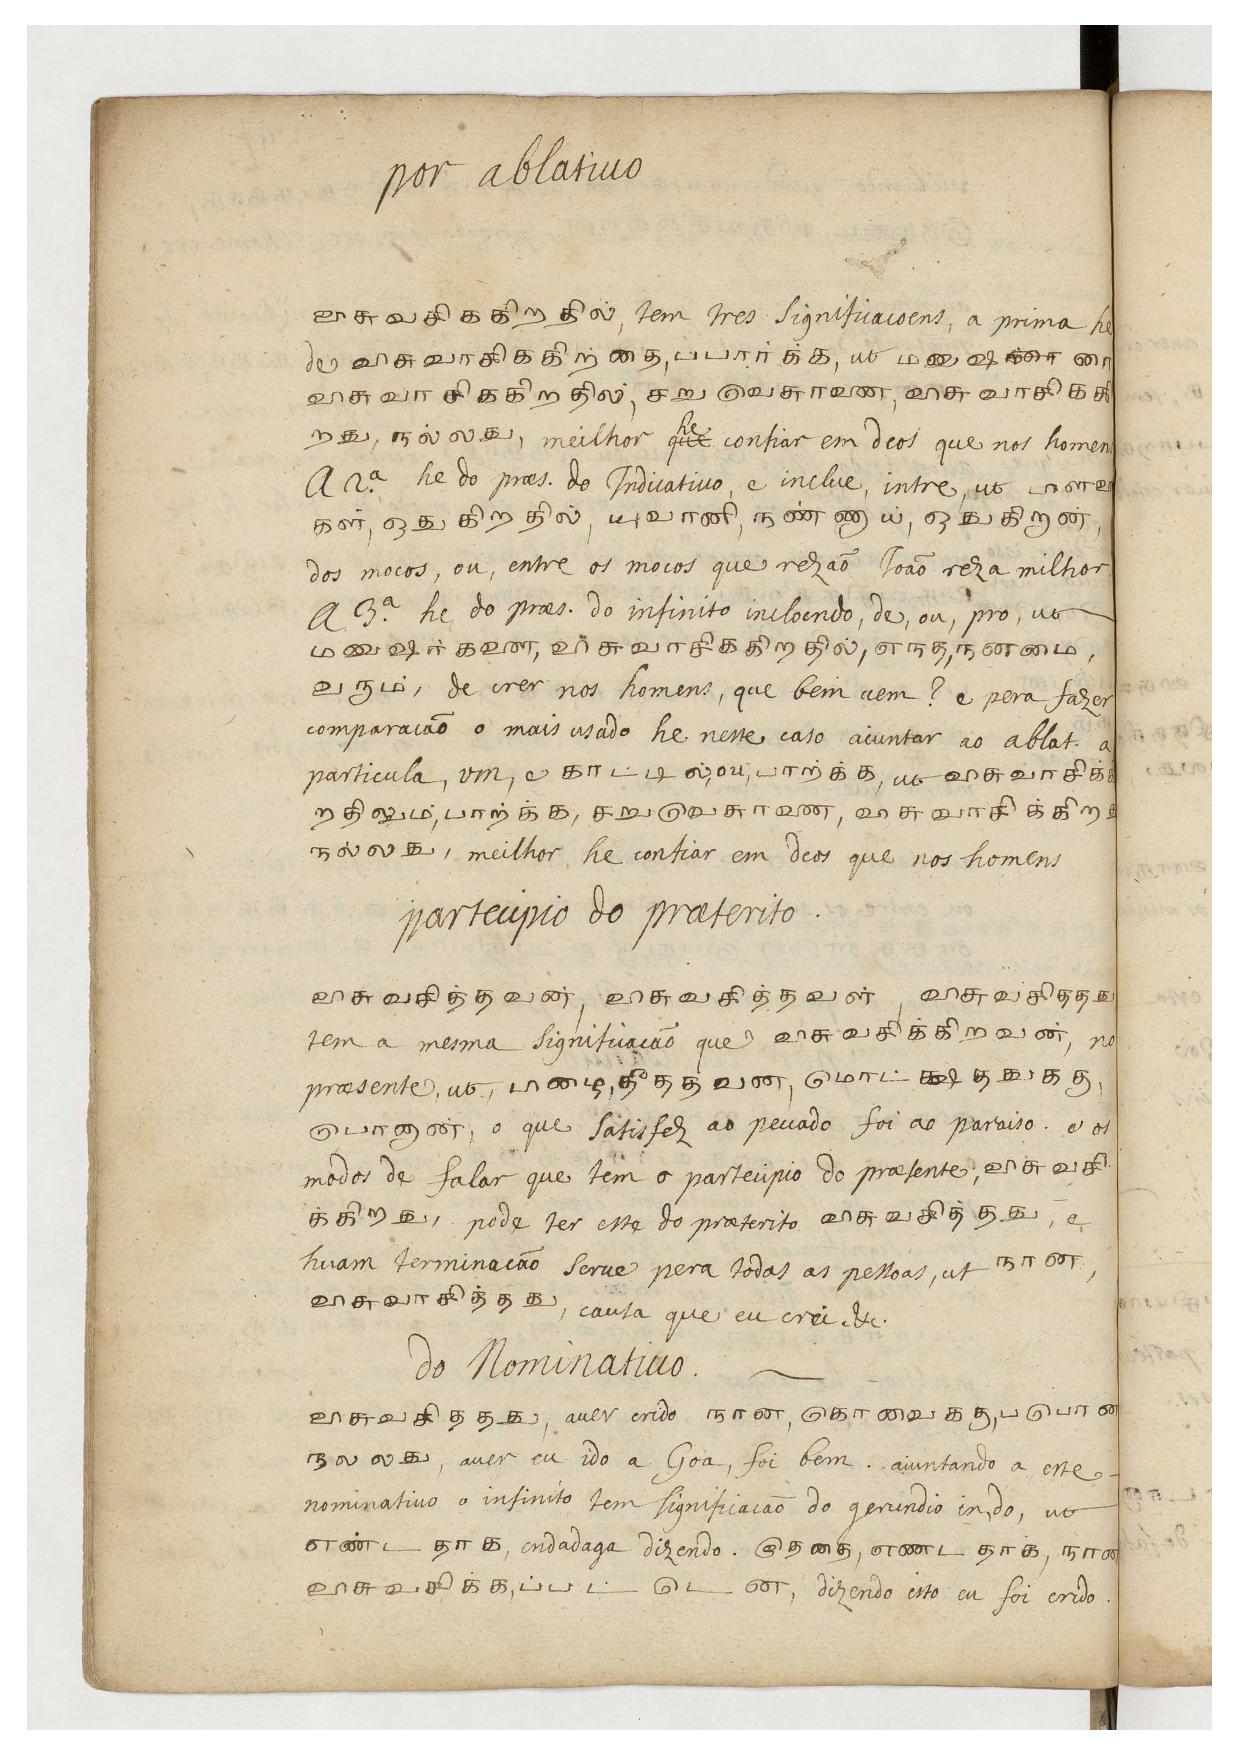 por ablatiuo
வாசுவசிககிறதில், tem tres significacoens, a prima he
de வாசுவாசிககிற்தை,ப்பார்க்க, ut மனுஷ
வாசுவாசிககிறதில், சறுவெசுரவண, வாசுவாசிககி
றது, நல்லது, meilhor he confiar em deos que nos homens
A 2.ª he do præs. do Indicatiuo, e inclue, intre, ut
கள், ஒதுகிறதில், யுவானி, நண்ணாய், ஒதுகிறான்,
dos mocos, ou, entre os mocos que rezaõ Ioaõ reza milhor
A 3.ª he do præs. do infinito incloendo, de, ou, pro, ut
மனுஷர்கவண, வாசுவாசிககிறதில், எநத,நனமை,
வரும், de crer nos homens, que bem uem? e pera fazer
comparacaõ o mais usado he neste caso aiuntar ao ablat. a
particula, vm, e காட்டில்,ou,பாற்க்க, ut வாசுவாசிக்கி
றதிலும்,பாற்க்க, சறுவெசுரவண, வாசுவாசிக்கிறது
நல்லது, meilhor he confiar em deos que nos homens
partecipio do præterito.
வாசுவசித்தவன், வாசுவசித்தவள், வாசுவசிததது
tem a mesma significacaõ que வாசுவசிக்கிறவன், no
præsente, ut, தீததவன, மொட்க்ஷததுகது,
பொனான், o que satisfez ao peccado foi ao paraiso. e os
modos de falar que tem o partecipio do præsente, வாசுவசி
க்கிறது, pode ter este do præterito வாசுவசித்தது, e
huam terminacaõ serue pera todas as pessoas, ut நான,
வாசுவாசித்தது, causa que eu crei &c.
do Nominatiuo.
வாசுவசிததது, auer crido நான, கொவைகது,பபொன
நலலது, auer eu ido a Goa, foi bem. aiuntando a este
nominatiuo o infinito tem significacaõ do gerundio in,do, ut
எண்டதாக, endadaga dizendo. இதை, எணடதாக, நான
வாசுவசிக்க,ப்பட்டென, dizendo isto eu foi crido.